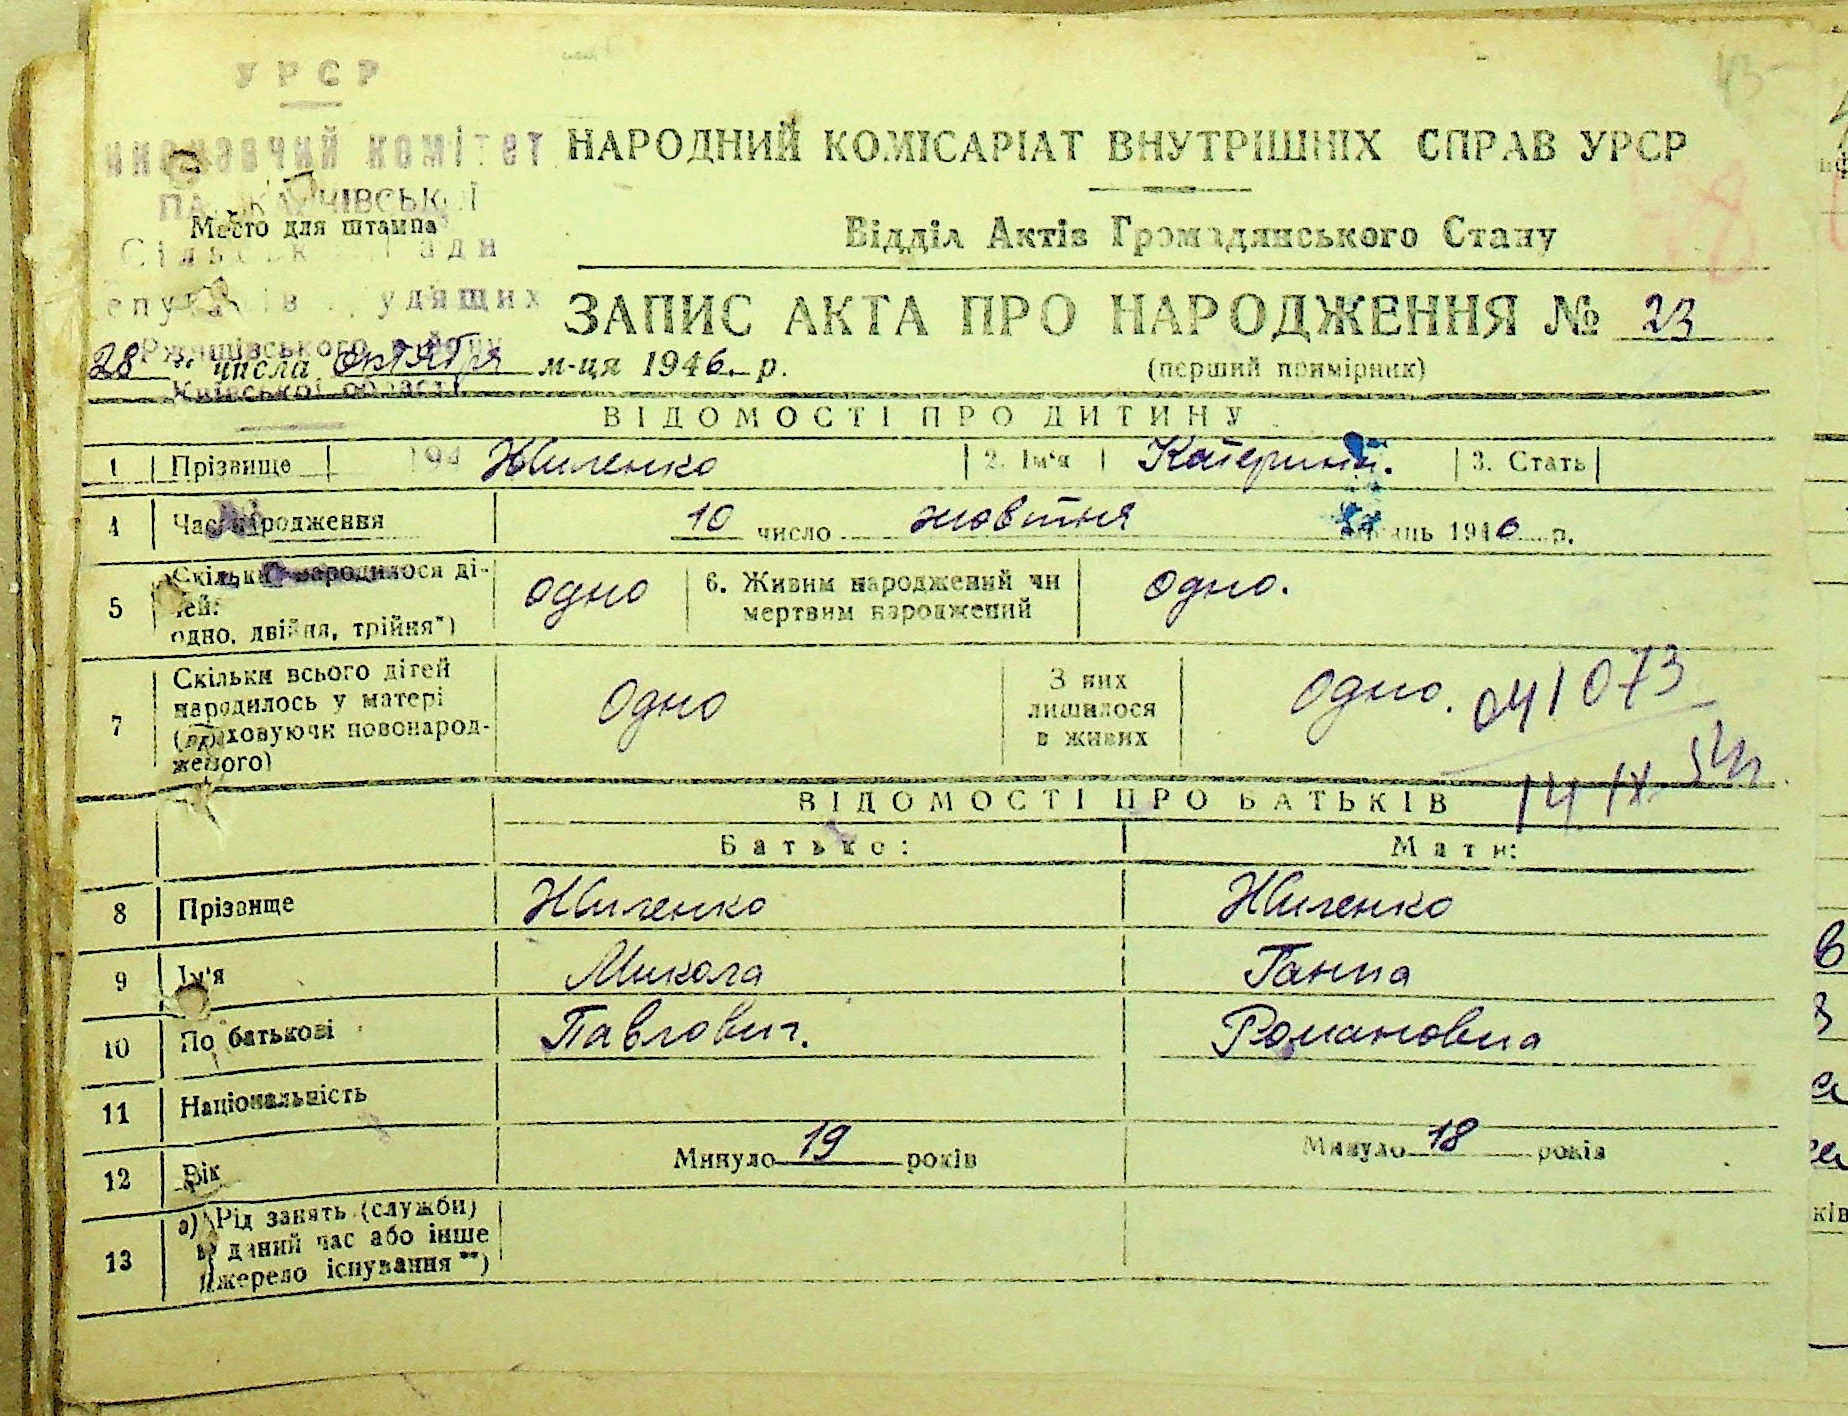 УРСР
виконавчий комітет
НАРОДНИЙ КОМІСАРІАТ ВНУТРІШНІХ СПРАВ УРСР
Место для штампа
Відділ Актів Громадянського Стану
ЗАПИС АКТА ПРО НАРОДЖЕННЯ № 23
Ржищівського району
28 " числа октября м-ця 1946. р.
(перший примірник)
Київської області
ВІДОМОСТІ ПРО ДИТИНУ
1 Прізвище 194 Жиленко 2. Ім'я Катерина. 3. Стать
4 Час народження 10 число жовтня 1946 р.
5 Скільки народилося ді-
тей:
одно, двійня, трійня*)
одно
6. Живим народжений чи
мертвим народжений
одно.
7 Скільки всього дітей
народилось у матері
(враховуючи новонарод-
женого)
одно
З них
лишилося
в живих
одно.
041073
14 IX
ВІДОМОСТІ ПРО БАТЬКІВ
Батько: Мати:
8 Прізвище Жиленко Жиленко
9 Ім'я Микола Ганна
10 По батькові Павлович. Романовна
11 Національність
12 Вік Минуло 19 років Минуло 18 років
13 а) Рід занять (служби)
в даний час або інше
джерело існування **)